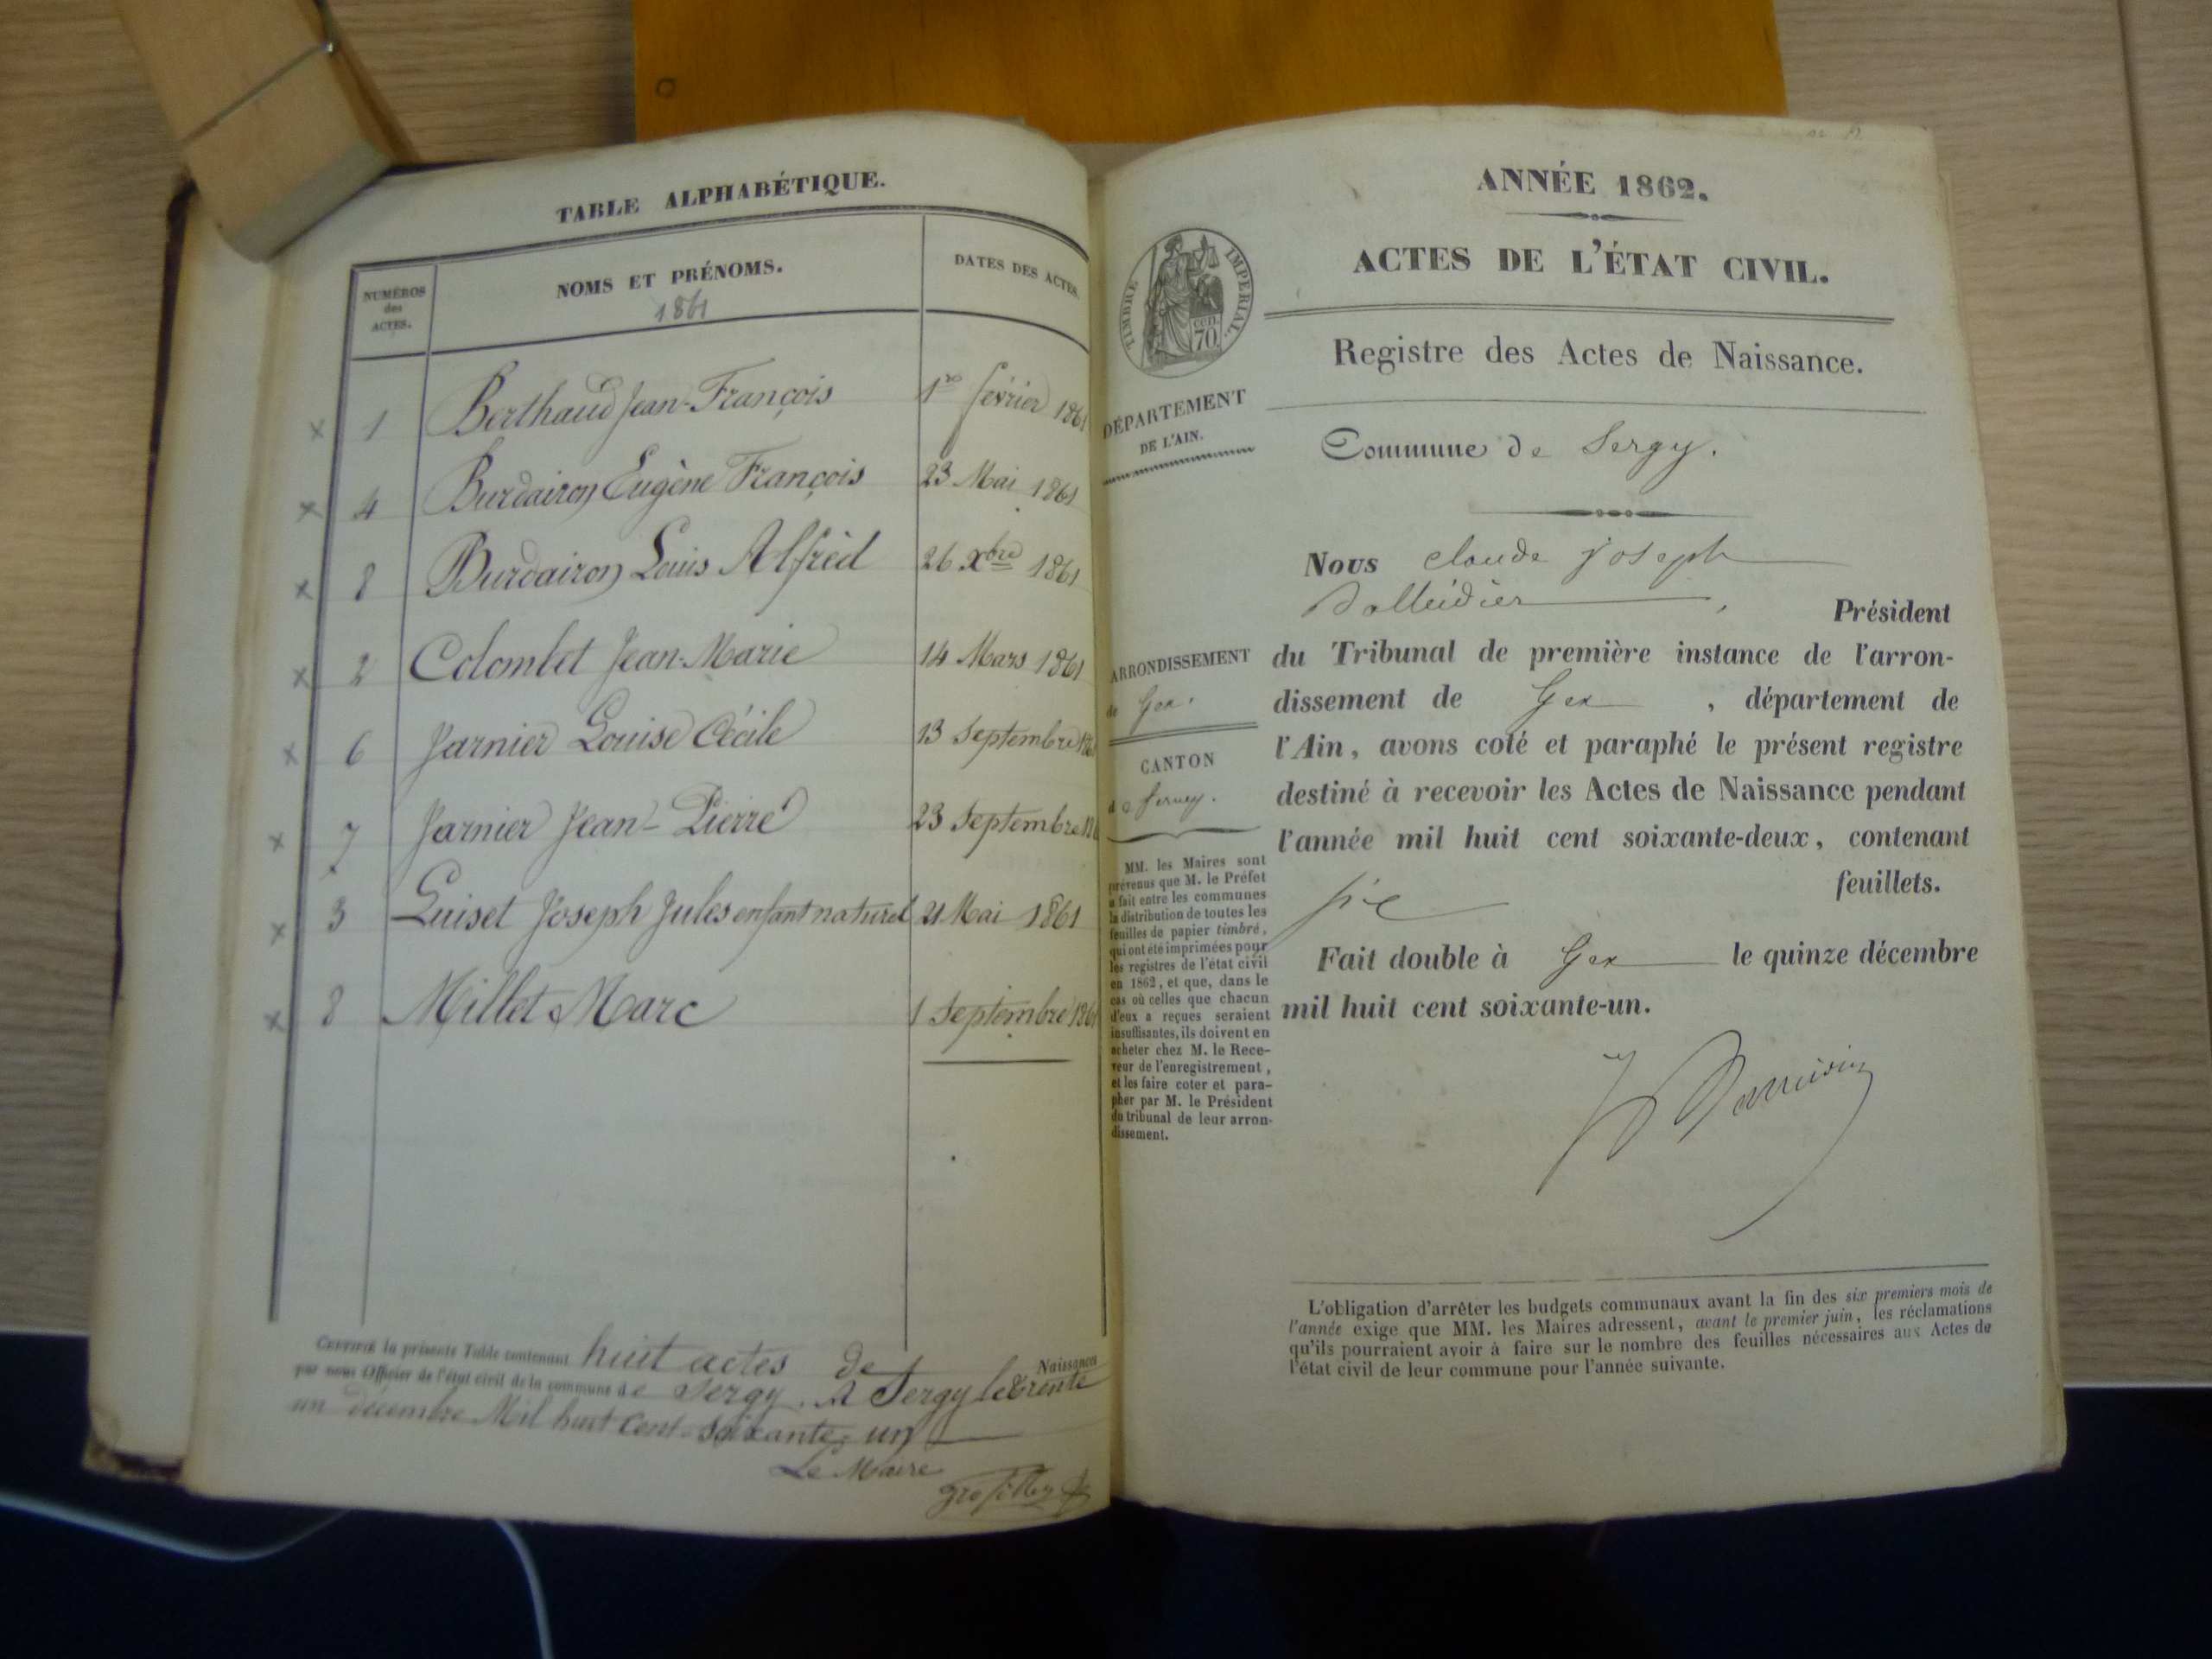 TABLE ALPHABÉTIQUE.
NUMÉROS des ACTES.
NOMS ET PRÉNOMS.
1861
DATES DES ACTES
x 1 Berthaud Jean-François 1er février 1861
x 4 Burdairon Eugène François 23 Mai 1861
x 8 Burdairon Louis Alfred 26 Xbre 1861
x 2 Colombet Jean-Marie 14 Mars 1861
x 6 Jarnier Louise Cécile 13 Septembre 1861
x 7 Jarnier Jean-Pierre 23 Septembre
x 3 Guiset Joseph Jules enfant naturel 21 Mai 1861
x 8 Millet Marc 1 Septembre 1861
CERTIFIÉ la présente Table contenant huit actes de Naissances
par nous Officier de l'état civil de la commune de Sergy. A Sergy le trente
un décembre Mil huit cent-soixante-un
Le Maire
ANNÉE 1862.
ACTES DE L'ÉTAT CIVIL.
TIMBRE IMPERIAL.
CEN. 70
Registre des Actes de Naissance.
DÉPARTEMENT
DE L'AIN.
Commune de Sergy.
Nous claude joseph
Président
du Tribunal de première instance de l'arron-
dissement de Gex, département de
l'Ain, avons coté et paraphé le présent registre
destiné à recevoir les Actes de Naissance pendant
l'année mil huit cent soixante-deux, contenant
feuillets.
Fait double à Gex le quinze décembre
mil huit cent soixante-un.
ARRONDISSEMENT
de Gex.
CANTON
de Ferney.
MM. les Maires sont
prévenus que M. le Préfet
a fait entre les communes
la distribution de toutes les
feuilles de papier timbré,
qui ont été imprimées pour
les registres de l'état civil
en 1862, et que, dans le
cas où celles que chacun
d'eux a reçues seraient
insuffisantes, ils doivent en
acheter chez M. le Rece-
veur de l'enregistrement,
et les faire coter et para-
pher par M. le Président
du tribunal de leur arron-
dissement.
L'obligation d'arrêter les budgets communaux avant la fin des six premiers mois de
l'année exige que MM. les Maires adressent, avant le premier juin, les réclamations
qu'ils pourraient avoir à faire sur le nombre des feuilles nécessaires aux Actes de
l'état civil de leur commune pour l'année suivante.